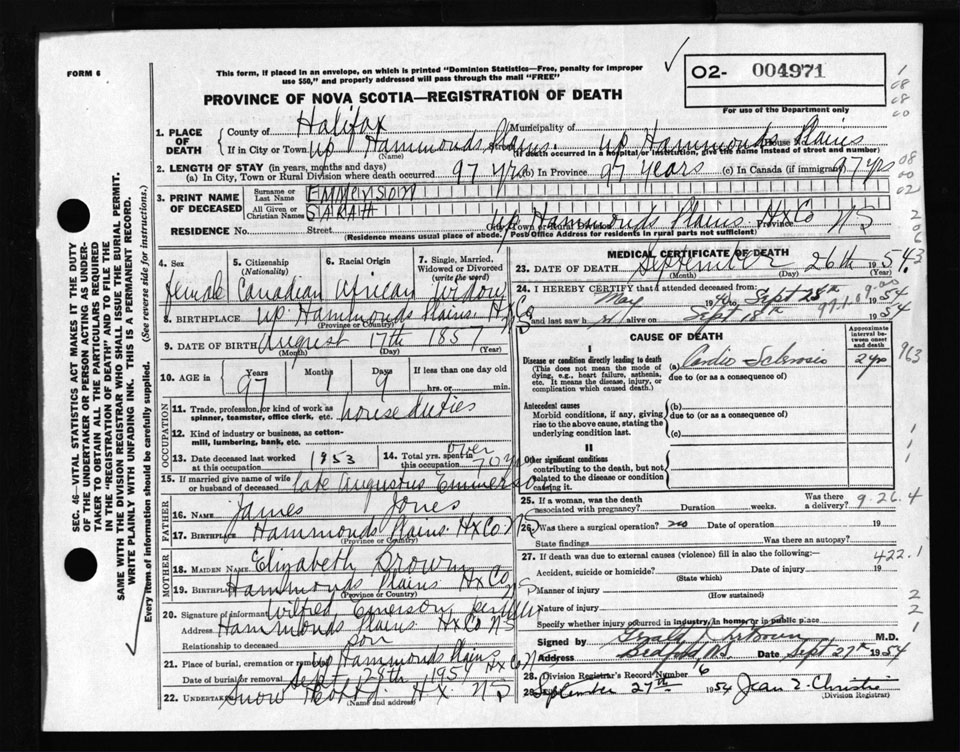 FORM 6
This form, if placed in an envelope, on which is printed "Dominion Statistics—Free, penalty for improper
use $50," and properly addressed will pass through the mail "FREE"
PROVINCE OF NOVA SCOTIA—REGISTRATION OF DEATH
02- 004971
For use of the Department only
1. PLACE OF DEATH
County of Halifax Municipality of
If in City or Town Up Hammonds Plains. Up Hammonds Plains House No.
(Name) (If death occurred in a hospital or institution, give the name instead of street and number)
2. LENGTH OF STAY (in years, months and days)
(a) In City, Town or Rural Division where death occurred 97 yrs (b) In Province 97 years (c) In Canada (if immigrant) 97 yrs
3. PRINT NAME OF DECEASED
Surname or Last Name EMMERSON
All Given or Christian Names SARAH
RESIDENCE No. Street Up. Hammond's Plains. Hx Co NS
City, Town or Rural Division Province
(Residence means usual place of abode. Post Office Address for residents in rural parts not sufficient)
4. Sex female
5. Citizenship (Nationality) Canadian
6. Racial Origin African
7. Single, Married, Widowed or Divorced (write the word) Widow
8. BIRTHPLACE Up. Hammonds Plains. Hx Co
(Province or Country)
9. DATE OF BIRTH August 17th 1857
(Month) (Day) (Year)
10. AGE in Years 97 Months 1 Days 9 If less than one day old
hrs. or min.
OCCUPATION
11. Trade, profession, or kind of work as spinner, teamster, office clerk, etc. house duties
12. Kind of industry or business, as cotton-mill, lumbering, bank, etc.
13. Date deceased last worked at this occupation 1953
14. Total yrs. spent in this occupation over 70 yrs
15. If married give name of wife or husband of deceased late Augustus Emmerson
FATHER
16. NAME James Jones
17. Birthplace Hammonds Plains Hx Co NS
(Province or Country)
MOTHER
18. MAIDEN NAME Elizabeth Brown
19. BIRTHPLACE Hammonds Plains Hx Co NS
(Province or Country)
20. Signature of informant Wilfred Emerson
Address Hammonds Plains Hx Co NS
Relationship to deceased son
21. Place of burial, cremation or removal Up Hammonds Plains Hx Co N
Date of burial or removal Sept. 28th 1954
22. UNDERTAKER Snow Hx. NS
(Name and address)
MEDICAL CERTIFICATE OF DEATH
23. DATE OF DEATH September 26th 1954
(Month) (Day) (Year)
24. I HEREBY CERTIFY that I attended deceased from:
May 1940 to Sept 1954
and last saw h er alive on Sept 18th 1954
CAUSE OF DEATH
Approximate interval between onset and death
I
Disease or condition directly leading to death (a) Cardio Sclerosis 2 yrs
(This does not mean the mode of dying, e.g., heart failure, asthenia, etc. It means the disease, injury, or complication which caused death.)
due to (or as a consequence of)
Antecedent causes (b)
Morbid conditions, if any, giving rise to the above cause, stating the underlying condition last.
due to (or as a consequence of)
(c)
II
Other significant conditions contributing to the death, but not related to the disease or condition causing it.
25. If a woman, was the death associated with pregnancy? Duration weeks. Was there a delivery?
9.26.4
26. Was there a surgical operation? no Date of operation 19
State findings Was there an autopsy?
27. If death was due to external causes (violence) fill in also the following:—
422.1
Accident, suicide or homicide? Date of injury 19
(State which)
Manner of injury
(How sustained)
Nature of injury
Specify whether injury occurred in industry, in home or in public place
Signed by Gerald J. M.D.
Address Bedford, N.S. Date Sept 27th 1954
28. Division Registrar's Record Number 6
September 27th 1954 Jean E. Christie
(Division Registrar)
SEC. 46—VITAL STATISTICS ACT MAKES IT THE DUTY
OF THE UNDERTAKER OR PERSON ACTING AS UNDER-
TAKER TO OBTAIN ALL THE PARTICULARS REQUIRED
IN THE "REGISTRATION OF DEATH" AND TO FILE THE
SAME WITH THE DIVISION REGISTRAR WHO SHALL ISSUE THE BURIAL PERMIT.
WRITE PLAINLY WITH UNFADING INK. THIS IS A PERMANENT RECORD.
Every item of information should be carefully supplied. (See reverse side for instructions.)